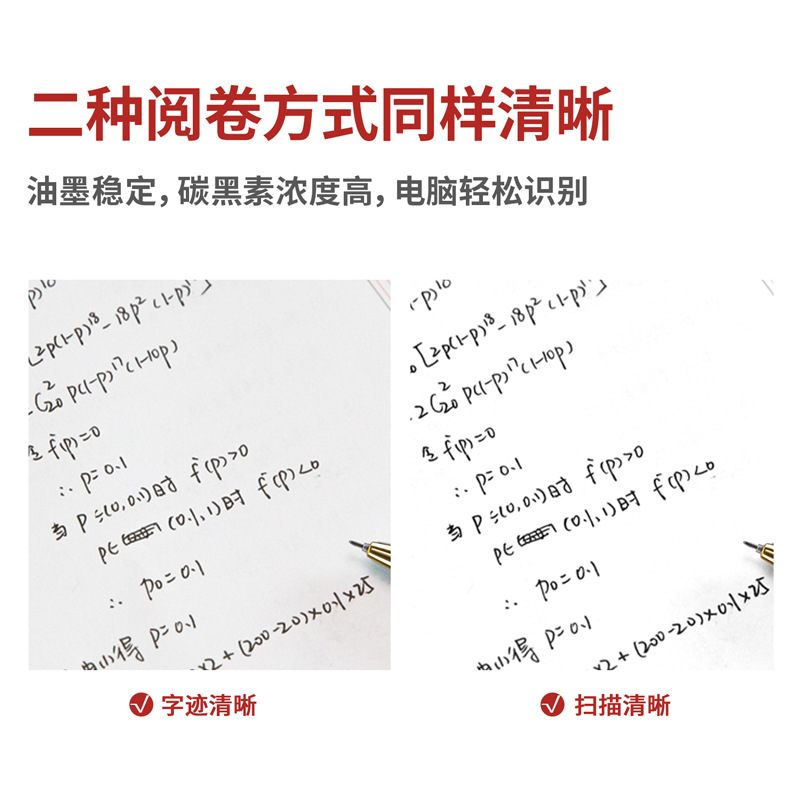 二种阅卷方式同样清晰
油墨稳定，碳黑素浓度高，电脑轻松识别
-p)¹⁰
[2p(1-p)¹⁸-18p²(1-p)¹⁷]
2C²₂₀p(1-p)¹⁷(1-10p)
f'(p)=0
∴ p=0.1
当 p∈(0,0.1)时 f'(p)>0
p∈ (0.1,1)时 f'(p)<0
∴ p₀=0.1
得 p=0.1
×2+(200-20)×0.1×25
字迹清晰
(1-p)¹⁰
[2p(1-p)¹⁸-18p²(1-p)¹⁷]
.2C²₂₀p(1-p)¹⁷(1-10p)
f'(p)=0
∴ p=0.1
当 p∈(0,0.1)时 f'(p)>0
p∈ (0.1,1)时 f'(p)<0
∴ p₀=0.1
得 p=0.1
×2+(200-20)×0.1×25
扫描清晰